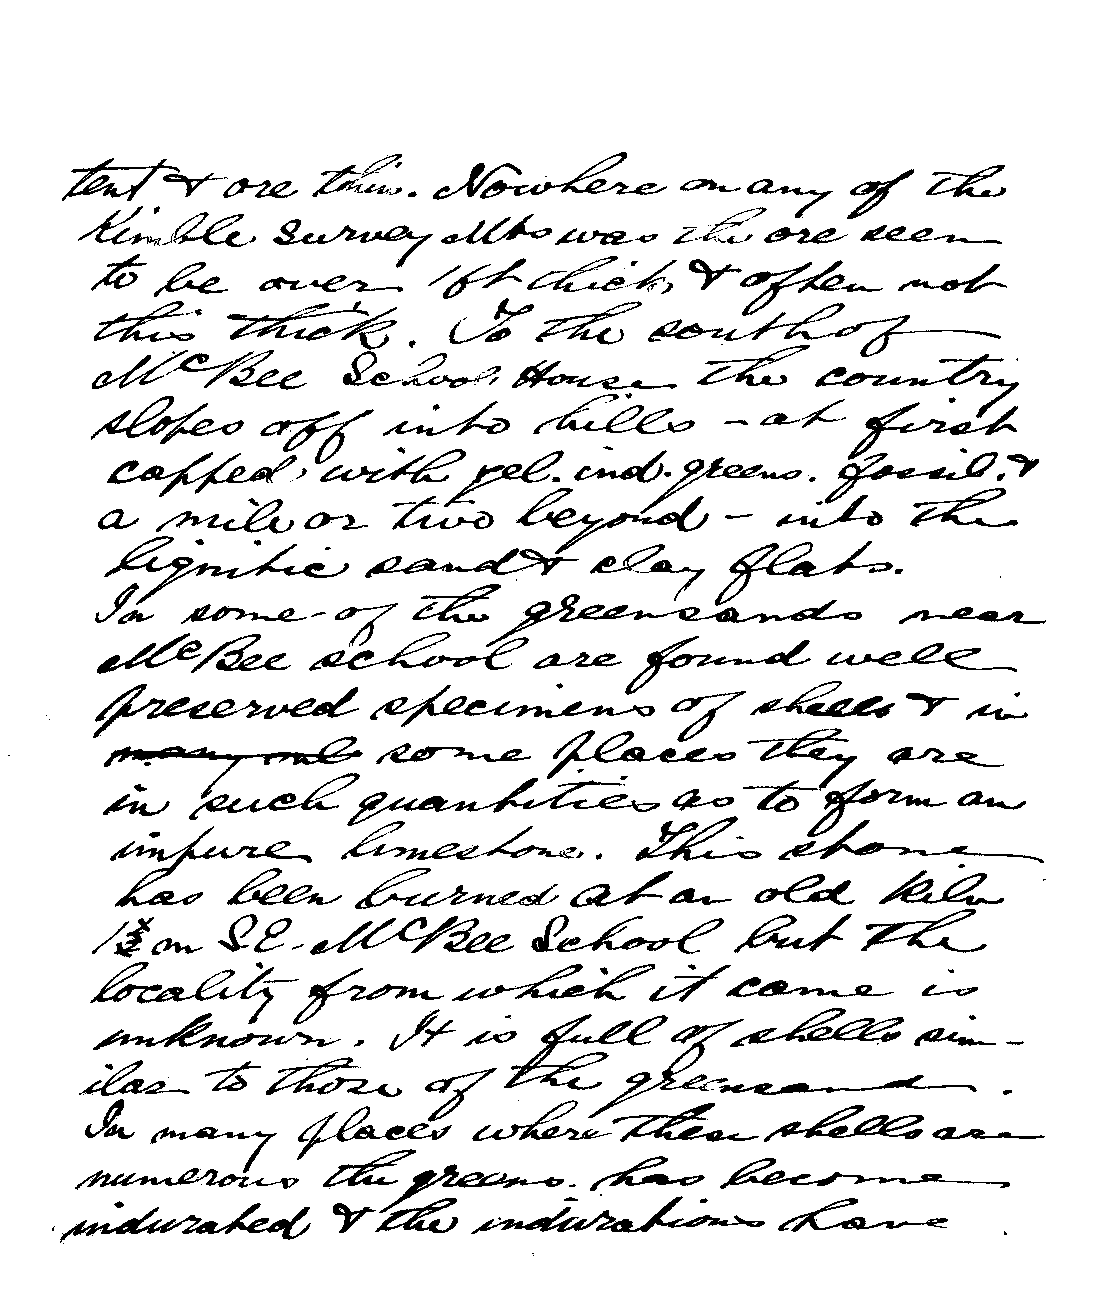 tent & ore thin. Nowhere on any of the
Kimble Survey Mts was the ore seen
to be over 1ft thick, & often not
this thick. To the south of
McBee School House the country
slopes off into hills - at first
capped with yel. ind. greens. fossil. &
a mile or two beyond - into the
lignitic sand & clay flats.
In some of the greensands near
McBee school are found well
preserved specimens of shells & in
some places they are
in such quantities as to form an
impure limestone. This stone
has been burned at an old kiln
m S.E. McBee School but the
locality from which it came is
unknown. It is full of shells sim-
ilar to those of the greensand.
In many places where these shells are
numerous the greens. has become
indurated & the indurations have